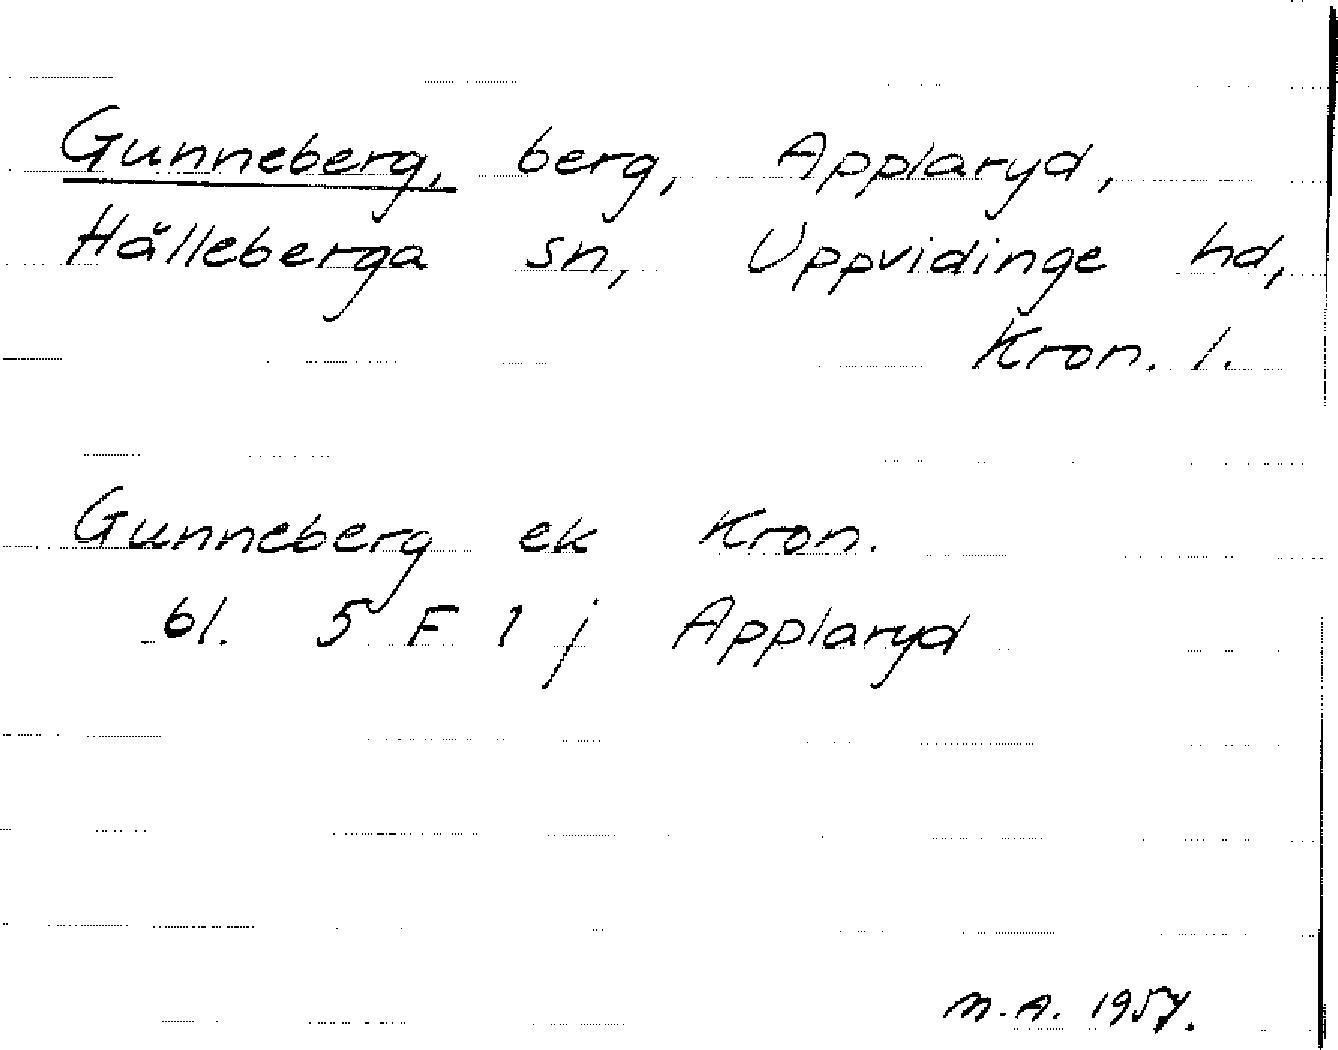 Gunneberg, berg, Applaryd,
Hälleberga sn, Uppvidinge hd,
Kron. l.
Gunneberg ek Kron.
bl. 5 F 1 j Applaryd
M.A. 1957.